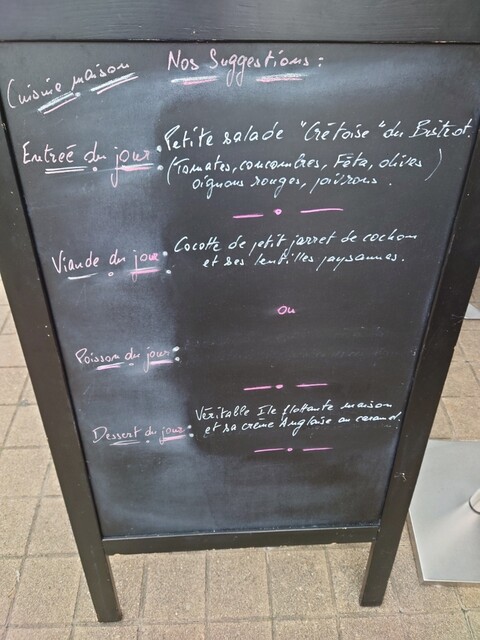 Nos Suggestions :
Cuisine maison
Entreé du jour : Petite salade "Crétoise" du Bistrot.
(Tomates, concombres, Féta, olives)
oignons rouges, poivrons.
Viande du jour : Cocotte de petit jarret de cochon
et ses lentilles paysannes.
ou
Poisson du jour :
Dessert du jour : Véritable Ile flottante maison
et sa crème Anglaise au caramel.